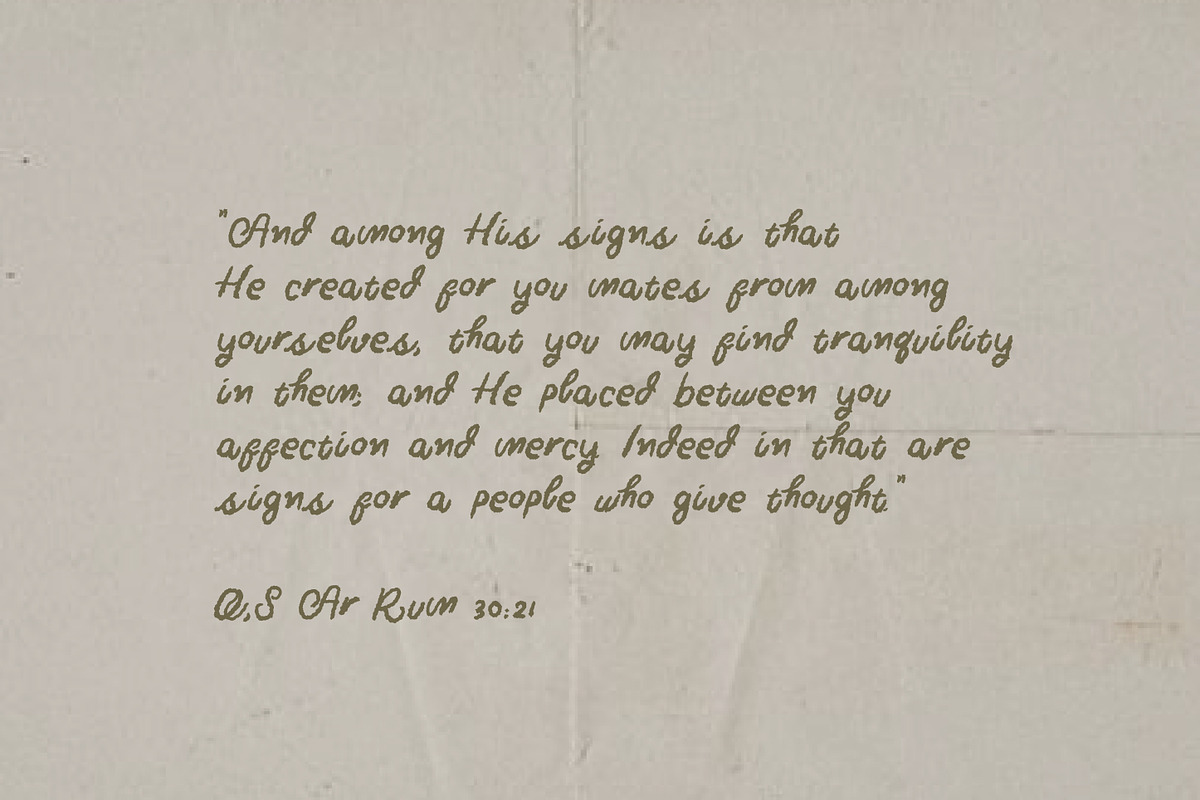 "And among His signs is that
He created for you mates from among
yourselves, that you may find tranquility
in them; and He placed between you
affection and mercy Indeed in that are
signs for a people who give thought."

Q.S Ar Rum 30:21